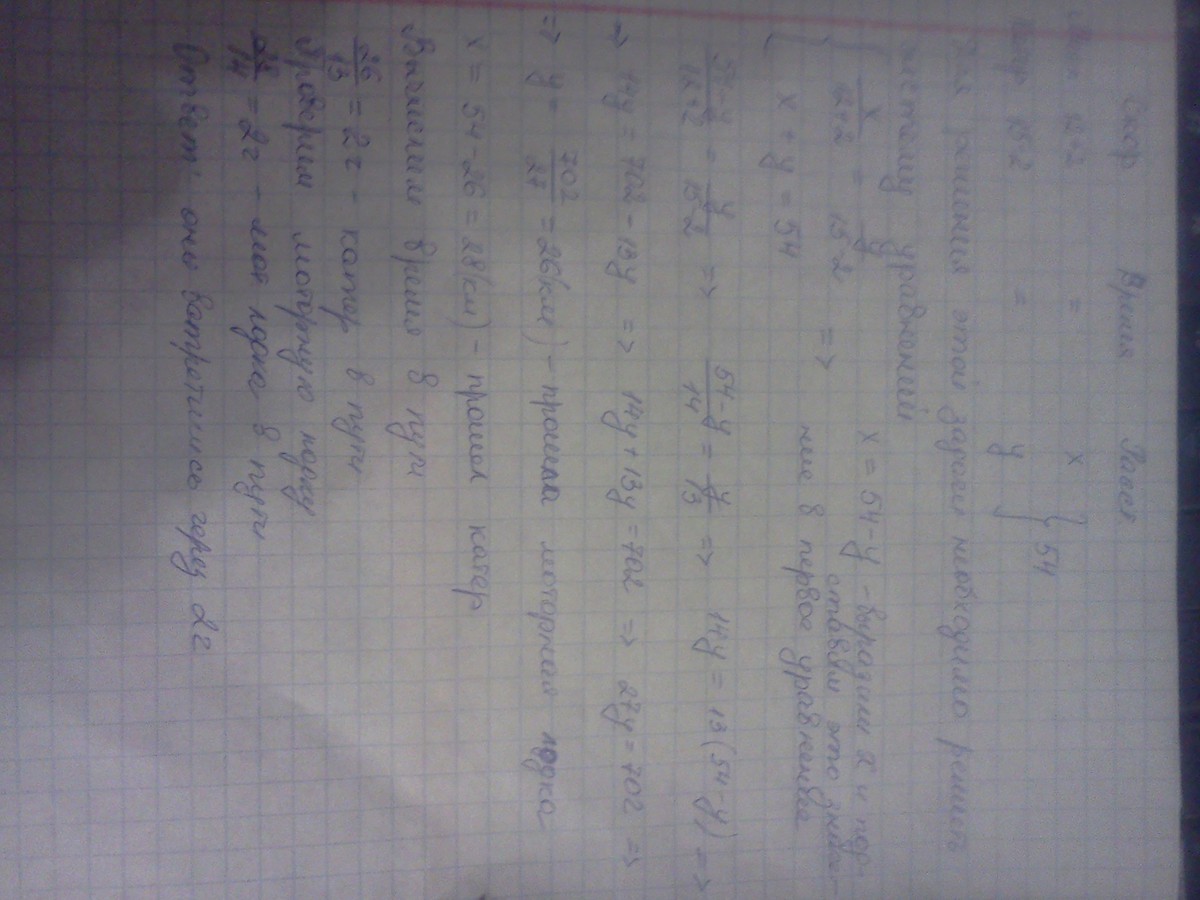 Скор Время Расст.
12+2 = x
15-2 = y } 54
Для решения этой задачи необходимо решить
систему уравнений
{ x/(12+2) = y/(15-2) => x = 54-y - выразим x и под-
x + y = 54 ставим это значе-
ние в первое уравнение
(54-y)/(12+2) = y/(15-2) => (54-y)/14 = y/13 => 14y = 13(54-y) =>
=> 14y = 702-13y => 14y+13y=702 => 27y=702 =>
=> y = 702/27 = 26(км) - прошла моторная лодка
x = 54-26 = 28(км) - прошел катер
Вычислим время в пути
26/13 = 2г - катер в пути
Проверим моторную лодку
28/14 = 2г - мот лодка в пути
Ответ: они встретились через 2г